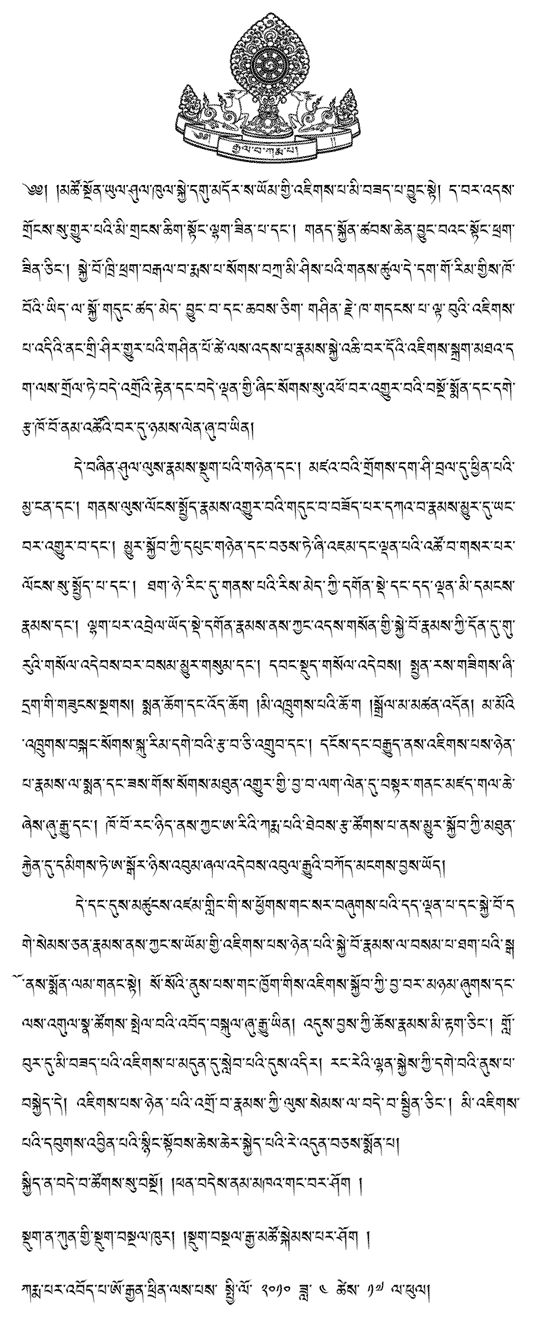 ༄༅།། རྒྱལ་བ་ཀརྨ་པ།
༄༅། །མཚོ་སྔོན་ཡུལ་ཤུལ་ཁུལ་སྐྱེ་དགུ་མདོར་ས་ཡོམ་གྱི་འཇིགས་པ་མི་བཟད་པ་བྱུང་སྟེ། ད་བར་འདས་
གྲོངས་སུ་གྱུར་པའི་མི་གྲངས་ཆིག་སྟོང་ལྷག་ཟིན་པ་དང་། གནད་སྐྱོན་ཚབས་ཆེན་བྱུང་བའང་སྟོང་ཕྲག་
ཟིན་ཅིང་། སྐྱེ་བོ་ཁྲི་ཕྲག་བརྒལ་བ་རྨས་པ་སོགས་བཀྲ་མི་ཤིས་པའི་གནས་ཚུལ་དེ་དག་གོ་རིམ་གྱིས་ཁོ་
བོའི་ཡིད་ལ་སྐྱོ་གདུང་ཚད་མེད་བྱུང་བ་དང་ཆབས་ཅིག གཤིན་རྗེ་ཁ་གདངས་པ་ལྟ་བུའི་འཇིགས་
པ་འདིའི་ནང་གྲི་ཤིར་གྱུར་པའི་གཤིན་པོ་ཚེ་ལས་འདས་པ་རྣམས་སྐྱེ་འཆི་བར་དོའི་འཇིགས་སྐྲག་མཐའ་ད
ག་ལས་གྲོལ་ཏེ་བདེ་འགྲོའི་རྟེན་དང་བདེ་ལྡན་གྱི་ཞིང་སོགས་སུ་འཕོ་བར་འགྱུར་བའི་བསྔོ་སྨོན་དང་དགེ་
རྩ་ཁོ་བོ་ནམ་འཚོའི་བར་དུ་ཉམས་ལེན་ཞུ་བ་ཡིན།
དེ་བཞིན་ཤུལ་ལུས་རྣམས་སྡུག་པའི་གཉེན་དང་། མཛའ་བའི་གྲོགས་དག་ཤི་བྲལ་དུ་ཕྱིན་པའི་
མྱ་ངན་དང་། གནས་ལུས་ལོངས་སྤྱོད་རྣམས་འགྱུར་བའི་གདུང་བ་བཟོད་པར་དཀའ་བ་རྣམས་མྱུར་དུ་ཡང་
བར་འགྱུར་བ་དང་། མྱུར་སྐྱོབ་ཀྱི་དཔུང་གཉེན་དང་བཅས་ཏེ་ཞི་འཇམ་དང་ལྡན་པའི་འཚོ་བ་གསར་པར་
ལོངས་སུ་སྤྱོད་པ་དང་། ཐག་ཉེ་རིང་དུ་གནས་པའི་རིས་མེད་ཀྱི་དགོན་སྡེ་དང་དད་ལྡན་མི་དམངས་
རྣམས་དང་། ལྷག་པར་འབྲེལ་ཡོད་སྡེ་དགོན་རྣམས་ནས་ཀྱང་འདས་གསོན་གྱི་སྐྱེ་བོ་རྣམས་ཀྱི་དོན་དུ་གུ་
རུའི་གསོལ་འདེབས་བར་བསམ་མྱུར་གསུམ་དང་། དབང་སྡུད་གསོལ་འདེབས། སྤྱན་རས་གཟིགས་ཞི་
དྲག་གི་གཟུངས་སྔགས། སྨན་ཆོག་དང་འོད་ཆོག །མི་འཁྲུགས་པའི་ཆོ་ག །སྒྲོལ་མ་མཚན་འདོན། མ་མོའི་
འཁྲུགས་བསྐང་སོགས་སྐུ་རིམ་དགེ་བའི་རྩ་བ་ཅི་འགྲུབ་དང་། དངོས་དང་བརྒྱུད་ནས་འཇིགས་པས་ཉེན་
པ་རྣམས་ལ་སྨན་དང་ཟས་གོས་སོགས་མཐུན་འགྱུར་གྱི་བྱ་བ་ལག་ལེན་དུ་བསྟར་གནང་མཛད་གལ་ཆེ་
ཞེས་ཞུ་རྒྱུ་དང་། ཁོ་བོ་རང་ཉིད་ནས་ཀྱང་ཨ་རིའི་ཀརྨ་པའི་ཐེབས་རྩ་ཚོགས་པ་ནས་མྱུར་སྐྱོབ་ཀྱི་མཐུན་
རྐྱེན་དུ་དམིགས་ཏེ་ཨ་སྒོར་ཉིས་འབུམ་ཞལ་འདེབས་འབུལ་རྒྱུའི་བཀོད་མངགས་བྱས་ཡོད།
དེ་དང་དུས་མཚུངས་འཛམ་གླིང་གི་ས་ཕྱོགས་གང་སར་བཞུགས་པའི་དད་ལྡན་པ་དང་སྐྱེ་བོ་ད
གེ་སེམས་ཅན་རྣམས་ནས་ཀྱང་ས་ཡོམ་གྱི་འཇིགས་པས་ཉེན་པའི་སྐྱེ་བོ་རྣམས་ལ་བསམ་པ་ཐག་པའི་སྒ
ོ་ནས་སྨོན་ལམ་གནང་སྟེ། སོ་སོའི་ནུས་པས་གང་ཁྱོག་གིས་འཇིགས་སྐྱོབ་ཀྱི་བྱ་བར་མཉམ་ཞུགས་དང་
ལས་འགུལ་སྣ་ཚོགས་སྤེལ་བའི་འབོད་བསྐུལ་ཞུ་རྒྱུ་ཡིན། འདུས་བྱས་ཀྱི་ཆོས་རྣམས་མི་རྟག་ཅིང་། གློ་
བུར་དུ་མི་བཟད་པའི་འཇིགས་པ་མདུན་དུ་སླེབ་པའི་དུས་འདིར། རང་རེའི་ལྷན་སྐྱེས་ཀྱི་དགེ་བའི་ནུས་པ་
བསྐྱེད་དེ། འཇིགས་པས་ཉེན་པའི་འགྲོ་བ་རྣམས་ཀྱི་ལུས་སེམས་ལ་བདེ་བ་སྦྱིན་ཅིང་། མི་འཇིགས་
པའི་དབུགས་འབྱིན་པའི་སྙིང་སྟོབས་ཆེས་ཆེར་སྐྱེད་པའི་རེ་འདུན་བཅས་སྨོན་པ།
སྐྱིད་ན་བདེ་བ་ཚོགས་སུ་བསྔོ། །ཕན་བདེས་ནམ་མཁའ་གང་བར་ཤོག །
སྡུག་ན་ཀུན་གྱི་སྡུག་བསྔལ་ཁུར། །སྡུག་བསྔལ་རྒྱ་མཚོ་སྐེམས་པར་ཤོག །
ཀརྨ་པར་འབོད་པ་ཨོ་རྒྱན་ཕྲིན་ལས་པས་ སྤྱི་ལོ་ ༢༠༡༠ ཟླ་ ༤ ཚེས་ ༡༧ ལ་ཕུལ།